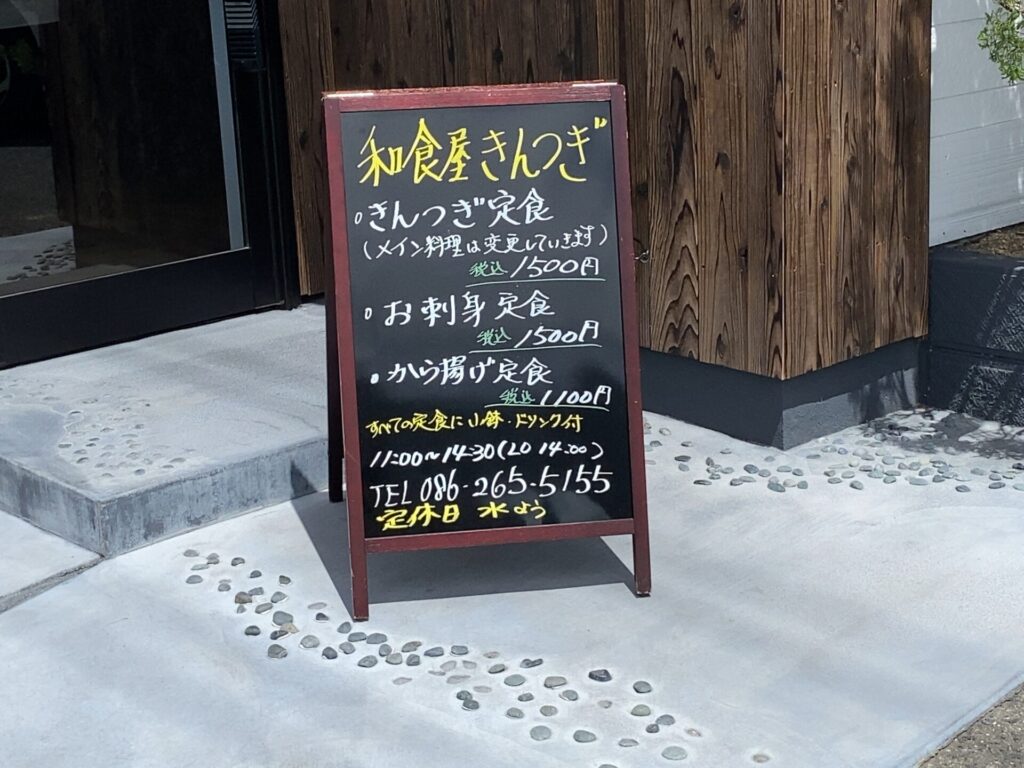 和食屋きんつぎ
・きんつぎ定食
(メイン料理は変更していきます)
税込 1500円
・お刺身定食
税込 1500円
・から揚げ定食
税込 1100円
すべての定食に小鉢・ドリンク付
11:00~14:30(LO 14:00)
TEL 086-265-5155
定休日 水よう